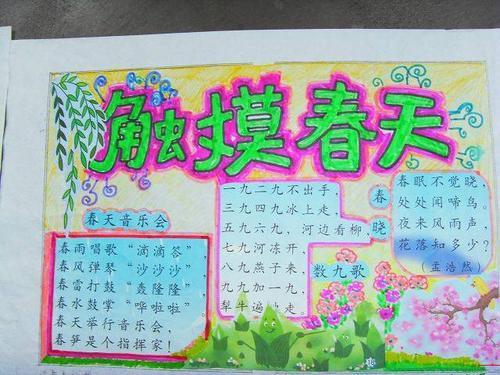 触摸春天
春天音乐会
春雨唱歌“滴滴答”，
春风弹琴“沙沙沙”
春雷打鼓“轰隆隆”
春水鼓掌“哗啦啦”
春天举行音乐会，
春笋是个指挥家！
一九二九不出手，
三九四九冰上走，
五九六九，河边看柳，
七九河冻开，
八九燕子来，
九九加一九，
犁牛遍地走。
数九歌
春晓
春眠不觉晓，
处处闻啼鸟。
夜来风雨声，
花落知多少？
（孟浩然）